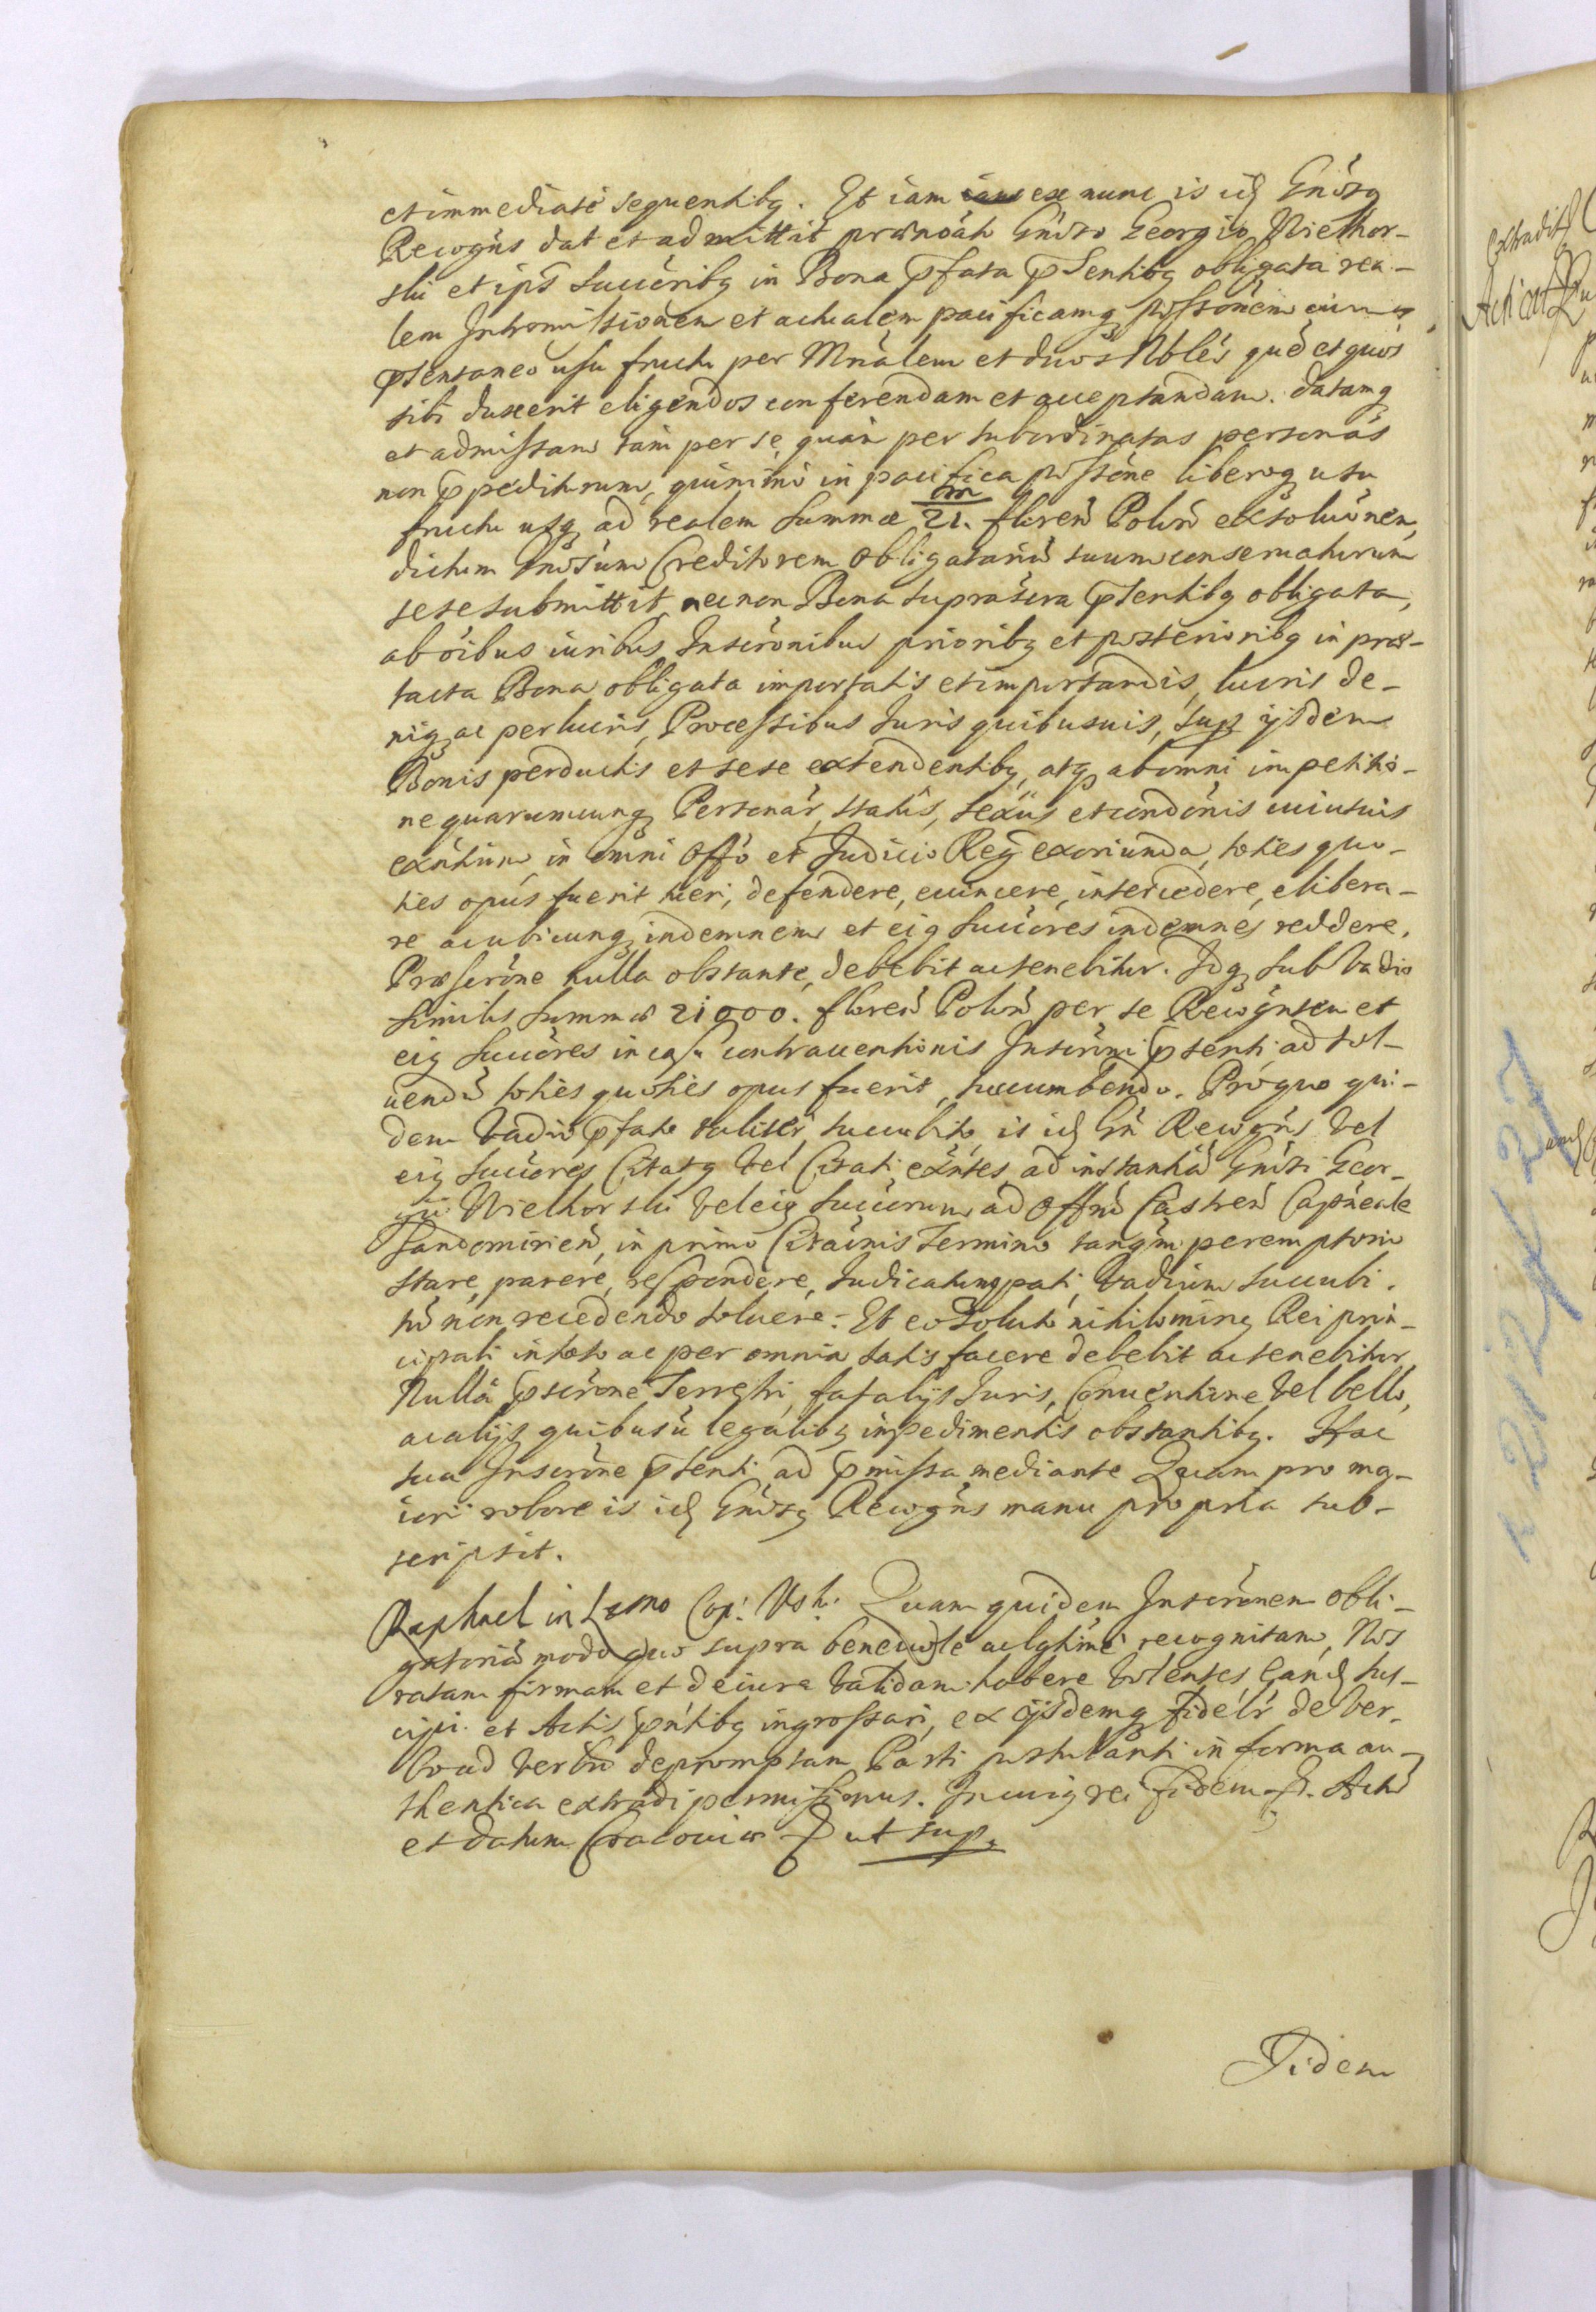 et immediate sequentibq. Et iam ex nunc is id Gnosq
Recogns dat et admittit prænoato Gnoso Georgio Wielhor-
ski et ips succoribq in Bona pfata psentibq obligata rea-
lem Intromissionem et actualem pacificamq possonem cum
psentaneo usu fructu per Mnalem et duos Nobles que et quos
sibi duxerit eligendos conferendam et acceptandam. datamq
et admissam tam per se, quam per subordinatas personas
non ppediturum, quinimo in pacifica possone liberoq usu
fructu usq ad realem summæ 21.m floren Polon exsoluonem,
dictum Gnosum Creditorem obligatariu suum conseruaturum
sese submittit, necnon Bona suprascra psentibq obligata,
ab oibus iuribus Inscronibus prioribq et posterioribq in præ-
tacta Bona obligata importatis et importandis, lucris de-
niq ac perlucris, Processibus Iuris quibusuis, sup ijsdem
Bonis perductis et sese extendentibq, atq ab omni impetitio-
ne quarumcunq Personar, status, sexus et condonis cuiusuis
exntium, in omni Offo et Iudicio Reg exoriunda, toties quo-
ties opus fuerit tueri, defendere, euincere, intercedere, elibera-
re ac ubicunq indemnem et eiq succores indemnes reddere.
Præscrone nulla obstante, debebit ac tenebitur. Idq sub vadio
similis summæ 21000. floren Polon per se Recognscen et
eiq succores in casu contrauentionis Inscroni psenti ad sol-
uendu toties quoties opus fuerit, succumbendo. Pro quo qui-
dem vadio pfato taliter succubito, is id Gn Recogns vel
eiq succores Citatq vel Citati exntes, ad instantia Gnosi Geor-
gii Wielhorski vel eiq succorum ad Offiu Castren Capneale
Sandomirien, in primo Citaonis Termino tanqm peremptorio
stare, parere, respondere, Iudicatumq pati, vadium succubi-
tu non recedendo soluere. Et eo soluto nihilominq Rei prin-
cipali in toto ac per omnia satisfacere debebit ac tenebitur
Nulla pscrone Terrestri, fatalijs Iuris, Conuentione vel bello,
ac alijs quibusu legalibq impedimentis obstantibq. Hac
sua Inscrone psenti ad pmissa mediante Quam pro ma-
iori robore is id Gnosq Recogns manu propria sub-
scripsit.
Raphael in Leszno Quam quidem Inscronem obli-
gatoria modo quo supra beneuole ac lgtime recognitam, Nos
ratam firmam et de iure validam habere volentes, eand sus-
cipi et Actis pntibq ingrossari, ex ijsdemq fideli de ver-
bo ad verbu depromptam Parti postulanti in forma au-
thentica extradi permisimus. In cuiq rei fidem. Actu
et datum Cracouiæ ut sup.
Fidem